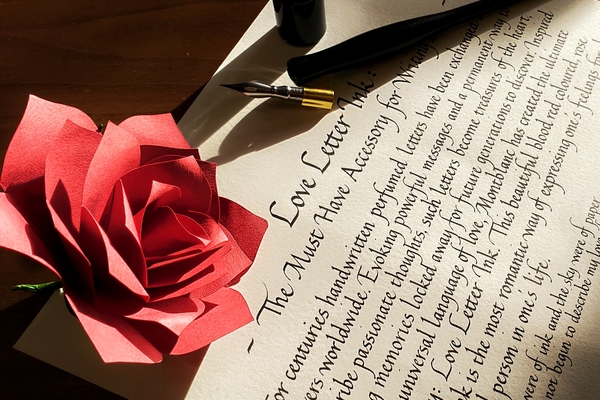 Love Letter Ink:
~ The Must Have Accessory for Writing
For centuries handwritten perfumed letters have been exchanged
worldwide. Evoking powerful messages and a permanent way
passionate thoughts, such letters become treasures of the heart,
memories locked away for future generations to discover. Inspired
universal language of love, Montblanc has created the ultimate
Love Letter Ink. This beautiful blood red coloured rose
is the most romantic way of expressing one's feelings for
person in one's life.
were of ink and the sky were of paper
not begin to describe my love